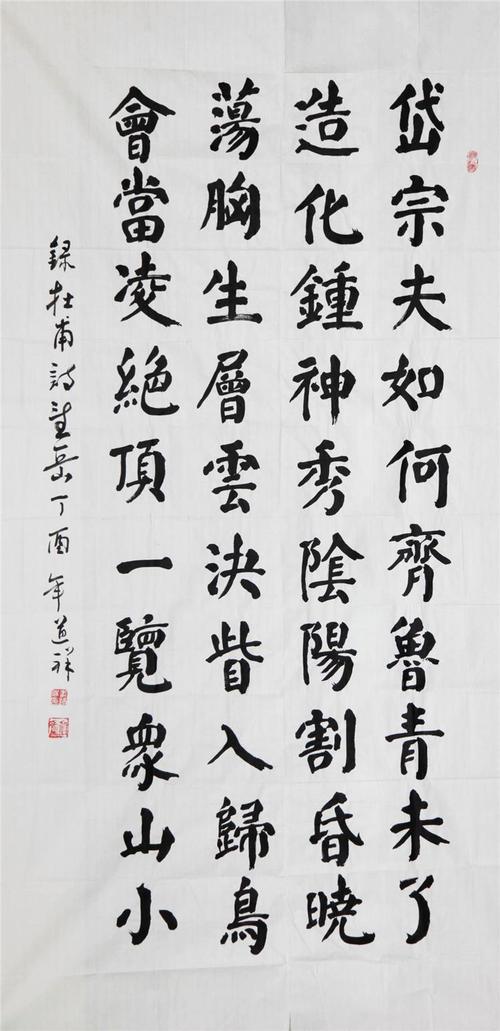 岱宗夫如何齊魯青未了
造化鍾神秀陰陽割昏曉
蕩胸生層雲決眥入歸鳥
會當凌絕頂一覽衆山小
錄杜甫詩望岳丁酉年道祥